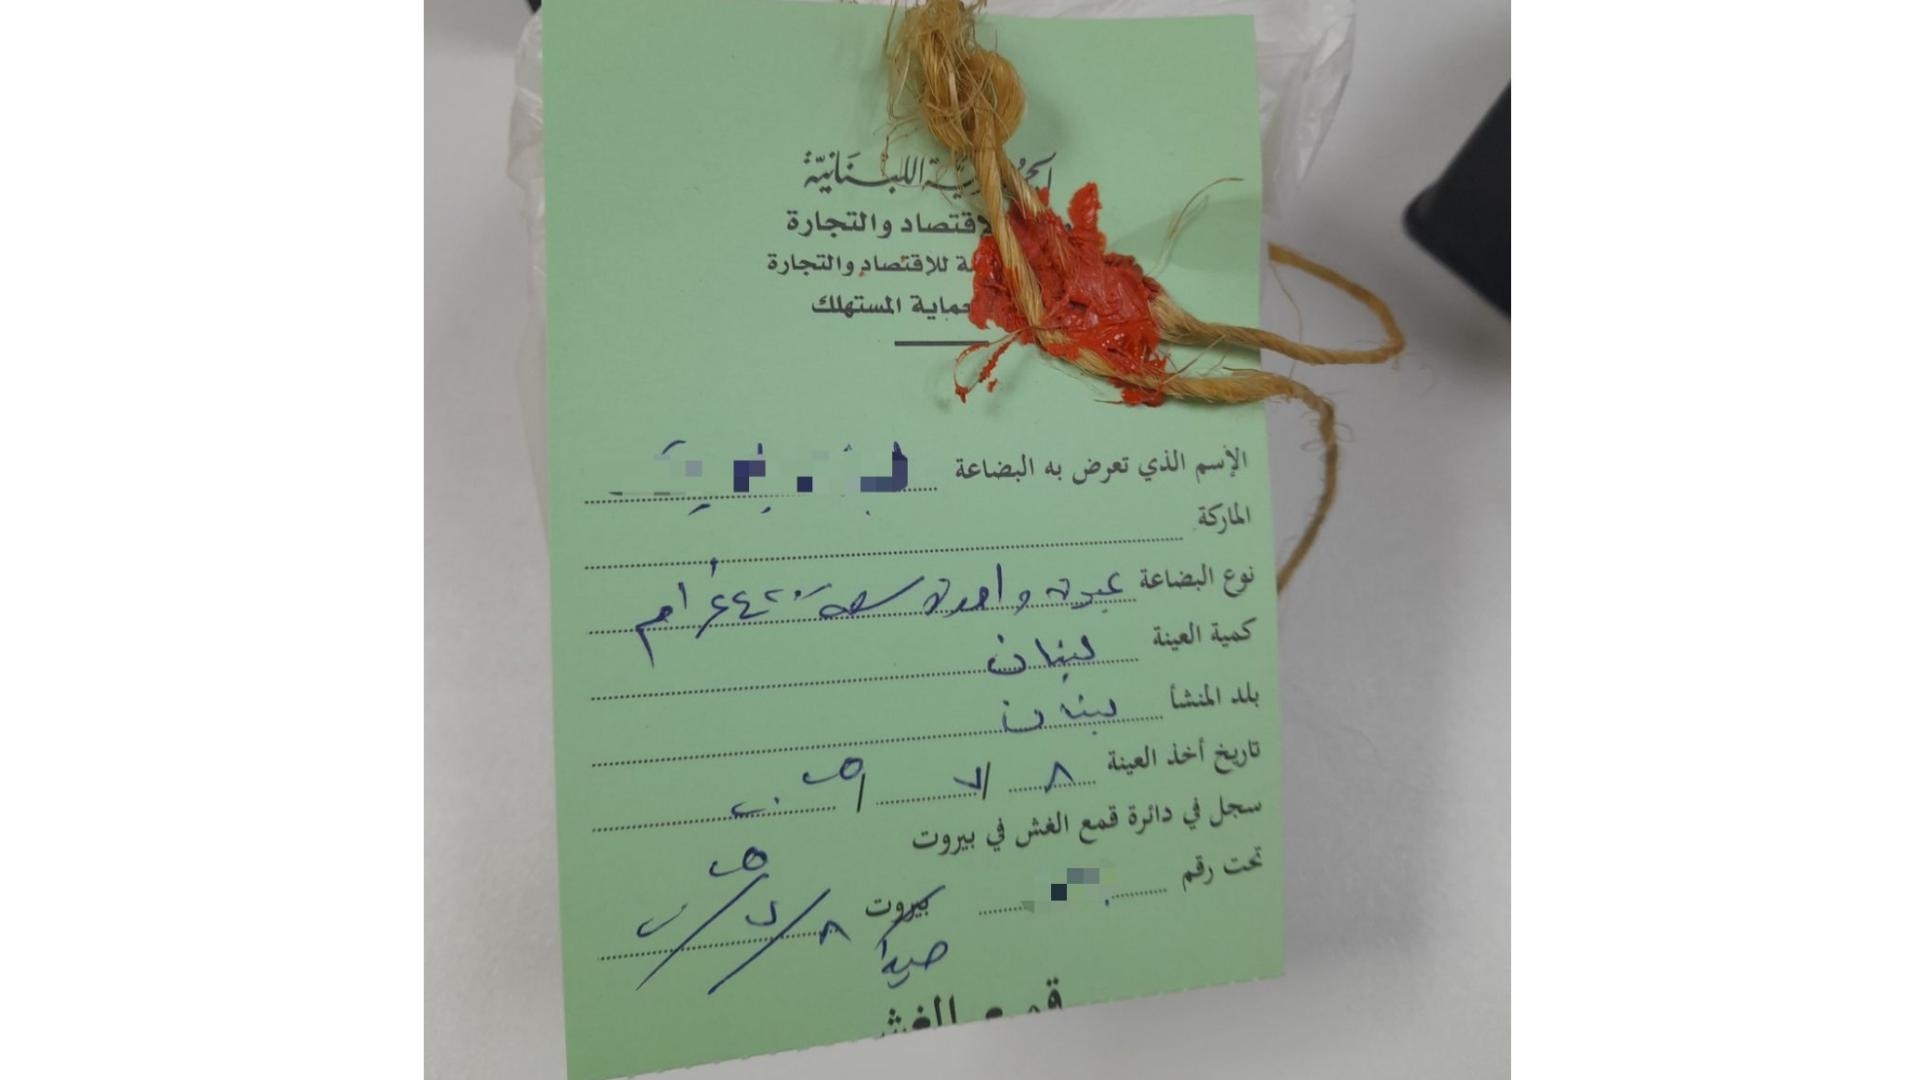 الجمهورية اللبنانية
الاقتصاد والتجارة
للاقتصاد والتجارة
حماية المستهلك
الإسم الذي تعرض به البضاعة
الماركة
نوع البضاعة عبوة واحدة سعة
كمية العينة لبنان
بلد المنشأ لبنان
تاريخ أخذ العينة ٨ / ٧ /
سجل في دائرة قمع الغش في بيروت
تحت رقم
بيروت ٨ / ٧ /
صيدا
قمع الغش